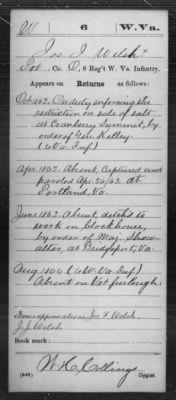 W | 6 | W. Va.
Jos. J. Welsh
Pvt., Co. O, 6 Reg't W. Va. Infantry.
Appears on Returns as follows:
Oct. 1862. On duty enforcing the
restriction on sale of salt
at Cranberry Summit, by
order of Gen. Kelley
(6 Va. Inf.)
Apr. 1863. Absent, Captured and
paroled Apr. 26/63. at
Portland, Va.
June 1863. Absent, detch'd to
work on blockhouse,
by order of Maj. Show-
alter, at Bridgeport, Va.
Aug. 1864 (6 W. Va. Inf.)
Absent on Vet. furlough.
Name appears also as Jos. F. Welsh
J. J. Welsh
Book mark:
W. H. Collins
(646) Copyist.